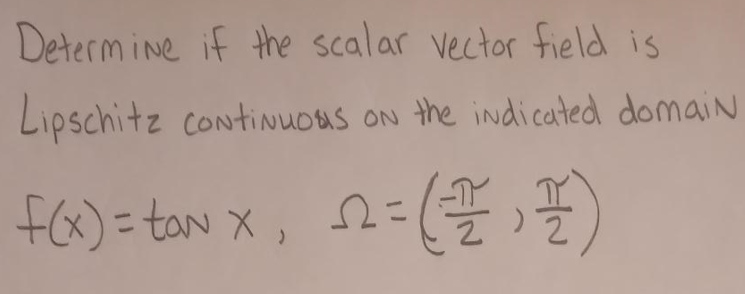 Determine if the scalar vector field is
Lipschitz continuous on the indicated domain
f(x) = tan x, Ω = (-π/2, π/2)